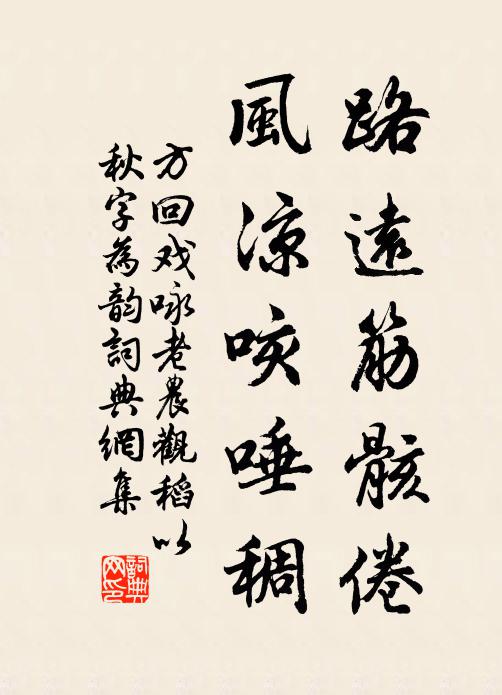 路遠筋骸倦
風涼咳唾稠
方回戏咏老農觀稻以
秋字為韵詞典網集
詞典网印